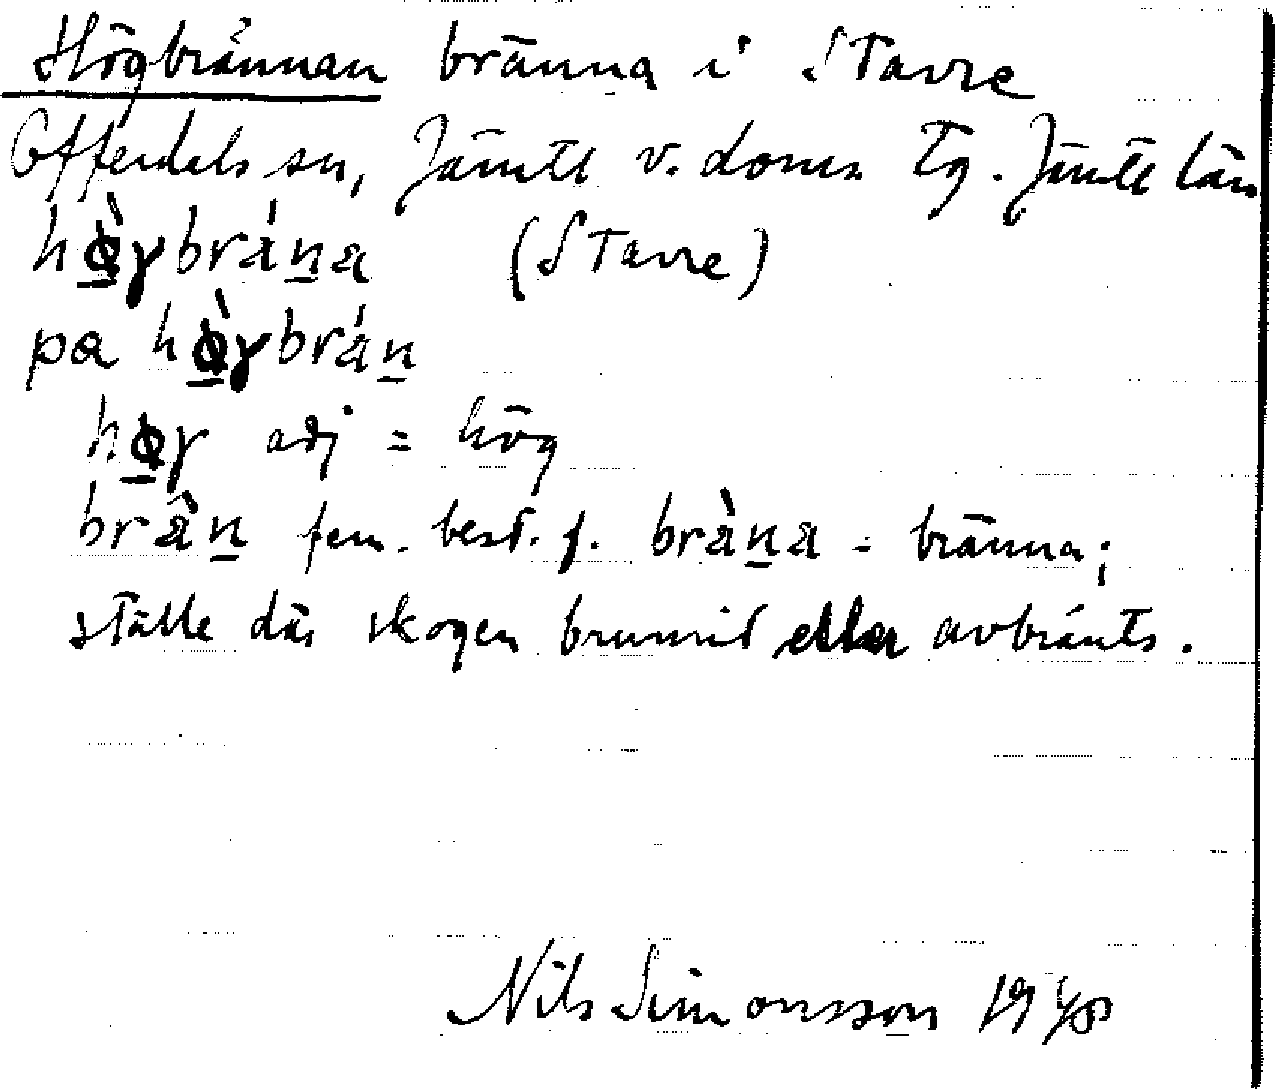 Högbrännan bränna i Stavre
Offerdals sn, Jämtl v. doms. Tg. Jämtl län
hø̀γbrána (Stavre)
pa hø̀γbrán
høγ adj = hög
brân fem. best. f. bràna = bränna;
ställe där skogen brunnit eller avbränts.
Nils Simonsson 1940